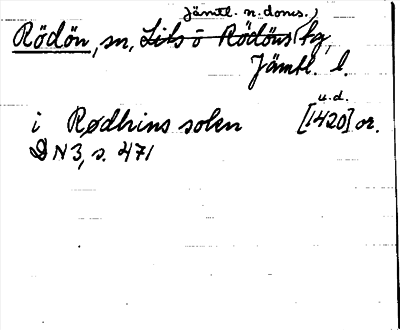 Jämtl. n. doms.,
Rödön, sn, Lits o Rödöns tg,
Jämtl. l.
u.d.
i Rødhins sokn [1420] or.
DN 3, s. 471